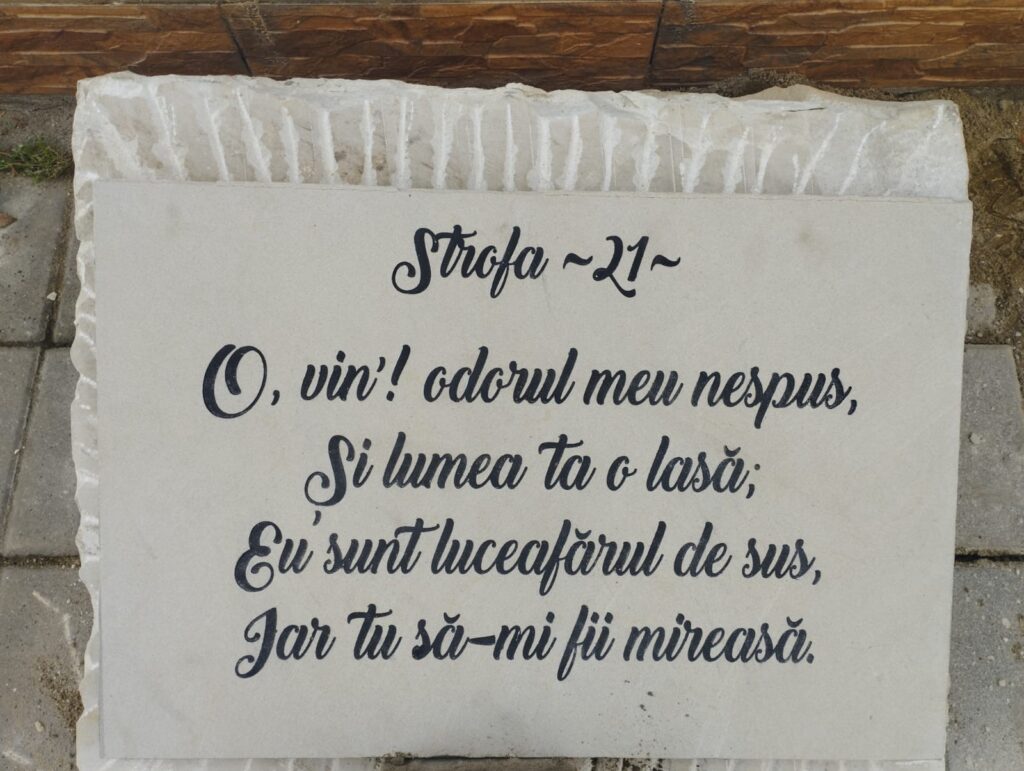 Strofa ~21~
O, vin'! odorul meu nespus,
Și lumea ta o lasă;
Eu sunt luceafărul de sus,
Iar tu să-mi fii mireasă.